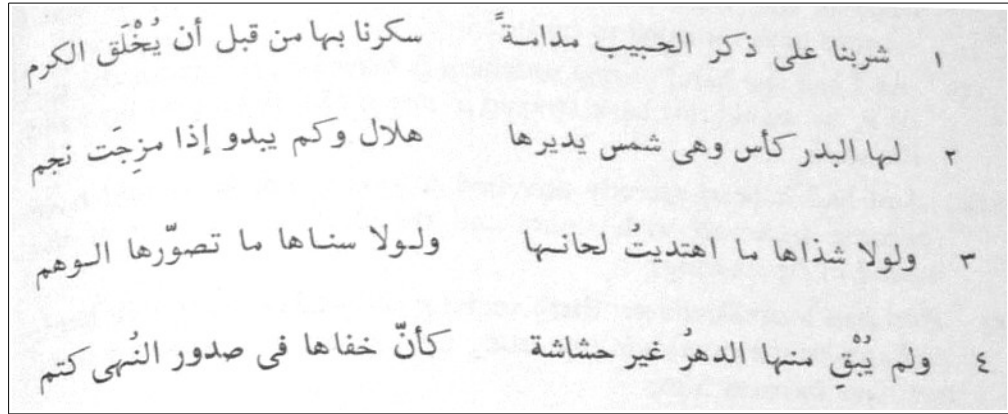 ١ شربنا على ذكر الحـبيب مدامـةً سكرنا بها من قبل أن يُخْلَق الكرم
٢ لها البدر كأس وهى شمس يديرها هلال وكم يبدو إذا مزِجَت نجم
٣ ولولا شذاها ما اهتديتُ لحانـها ولـولا سنـاها ما تصوّرها الـوهم
٤ ولم يُبْقِ منها الدهرُ غير حشاشة كأنّ خفاها فى صدور النُهى كتم